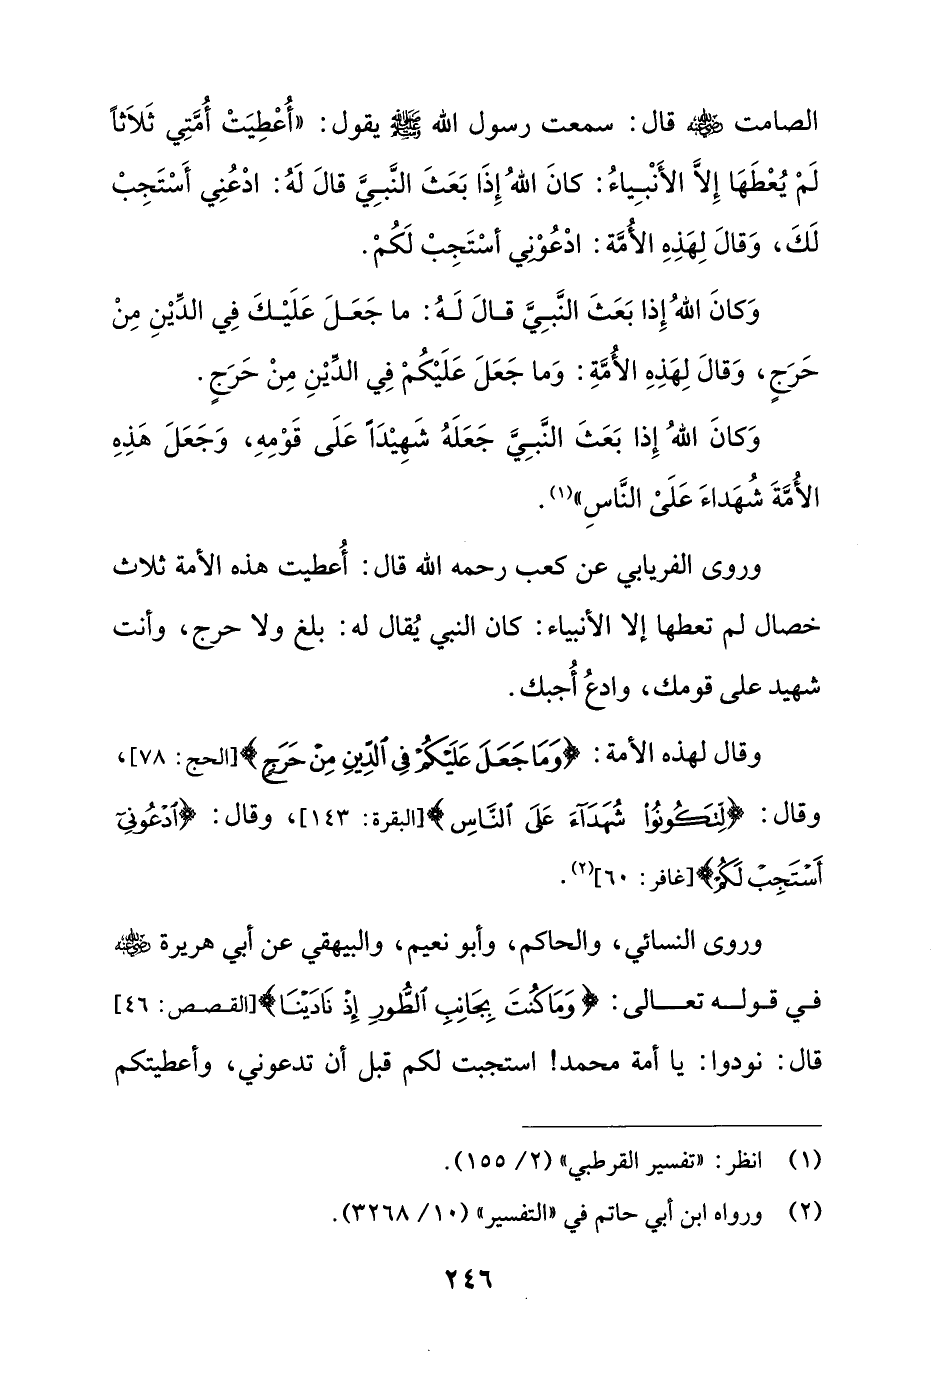 الصامت ﵁ قال: سمعت رسول الله ﷺ يقول: «أُعْطِيَتْ أُمَّتِي ثَلاَثاً
لَمْ يُعْطَهَا إِلاَّ الأَنْبِياءُ: كانَ اللهُ إِذَا بَعَثَ النَّبِيَّ قالَ لَهُ: ادْعُنِي أَسْتَجِبْ
لَكَ، وَقالَ لِهَذِهِ الأُمَّة: ادْعُوْنِي أسْتَجِبْ لَكُمْ.
وَكانَ اللهُ إِذا بَعَثَ النَّبِيَّ قالَ لَهُ: ما جَعَلَ عَلَيْكَ فِي الدِّيْنِ مِنْ
حَرَجٍ، وَقالَ لِهَذِهِ الأُمَّةِ: وَما جَعَلَ عَلَيْكُمْ فِي الدِّيْنِ مِنْ حَرَجٍ.
وَكانَ اللهُ إِذا بَعَثَ النَّبِيَّ جَعَلَهُ شَهِيْدَاً عَلَى قَوْمِهِ، وَجَعَلَ هَذِهِ
الأُمَّةَ شُهَداءَ عَلَىْ النَّاسِ»(١).
وروى الفريابي عن كعب رحمه الله قال: أُعطيت هذه الأمة ثلاث
خصال لم تعطها إلا الأنبياء: كان النبي يُقال له: بلغ ولا حرج، وأنت
شهيد على قومك، وادعُ أُجبك.
وقال لهذه الأمة: ﴿وَمَا جَعَلَ عَلَيْكُمْ فِي ٱلدِّينِ مِنْ حَرَجٍ﴾[الحج: ٧٨]،
وقال: ﴿لِتَكُونُوا۟ شُهَدَآءَ عَلَى ٱلنَّاسِ﴾[البقرة: ١٤٣]، وقال: ﴿ٱدْعُونِيٓ
أَسْتَجِبْ لَكُمْ﴾[غافر: ٦٠](٢).
وروى النسائي، والحاكم، وأبو نعيم، والبيهقي عن أبي هريرة ﵁
في قوله تعالى: ﴿وَمَا كُنتَ بِجَانِبِ ٱلطُّورِ إِذْ نَادَيْنَا﴾[القصص: ٤٦]
قال: نودوا: يا أمة محمد! استجبت لكم قبل أن تدعوني، وأعطيتكم
(١) انظر: «تفسير القرطبي» (٢/ ١٥٥).
(٢) ورواه ابن أبي حاتم في «التفسير» (١٠/ ٣٢٦٨).
٢٤٦